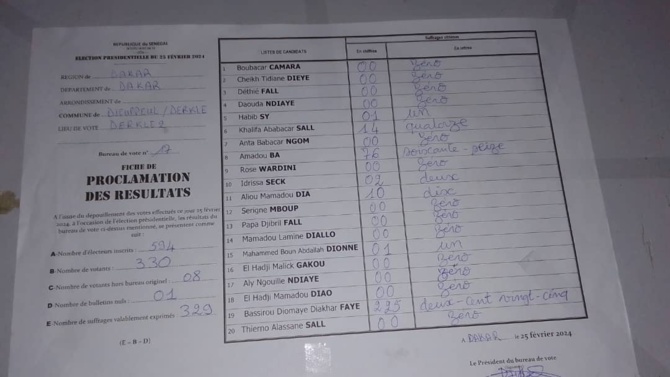 REPUBLIQUE DU SENEGAL
ELECTION PRESIDENTIELLE DU 25 FEVRIER 2024
REGION de DAKAR
DEPARTEMENT de DAKAR
ARRONDISSEMENT de
COMMUNE de DIEUPPEUL/DERKLE
LIEU DE VOTE DERKLE 2
Bureau de vote n° 17
FICHE DE
PROCLAMATION
DES RESULTATS
A l'issue du dépouillement des votes effectués ce jour 25 février
2024, à l'occasion de l'élection présidentielle, les résultats du
bureau de vote ci-dessus mentionné, se présentent comme
suit :
A-Nombre d'électeurs inscrits : 594
B-Nombre de votants : 330
C-Nombre de votants hors bureau originel : 08
D-Nombre de bulletins nuls : 01
E-Nombre de suffrages valablement exprimés : 329
(E = B - D)
Suffrages obtenus
LISTES DE CANDIDATS En chiffres En lettres
1 Boubacar CAMARA 00 Zéro
2 Cheikh Tidiane DIEYE 00 Zéro
3 Déthié FALL 00 Zéro
4 Daouda NDIAYE 00 Zéro
5 Habib SY 01 un
6 Khalifa Ababacar SALL 14 quatorze
7 Anta Babacar NGOM 00 Zéro
8 Amadou BA 76 soixante-seize
9 Rose WARDINI 00 Zéro
10 Idrissa SECK 02 deux
11 Aliou Mamadou DIA 10 dix
12 Serigne MBOUP 00 Zéro
13 Papa Djibril FALL 00 Zéro
14 Mamadou Lamine DIALLO 00 Zéro
15 Mahammed Boun Abdallah DIONNE 01 un
16 El Hadji Malick GAKOU 00 Zéro
17 Aly Ngouille NDIAYE 00 Zéro
18 El Hadji Mamadou DIAO 00 Zéro
19 Bassirou Diomaye Diakhar FAYE 225 deux-cent vingt-cinq
20 Thierno Alassane SALL 00 Zéro
A DAKAR, le 25 février 2024
Le Président du bureau de vote